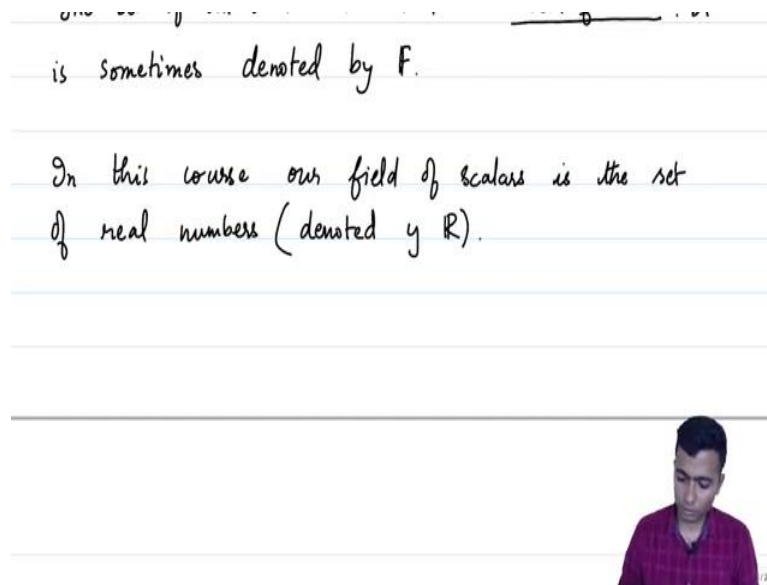 is sometimes denoted by F.
In this course our field of scalars is the set
of real numbers (denoted y R).